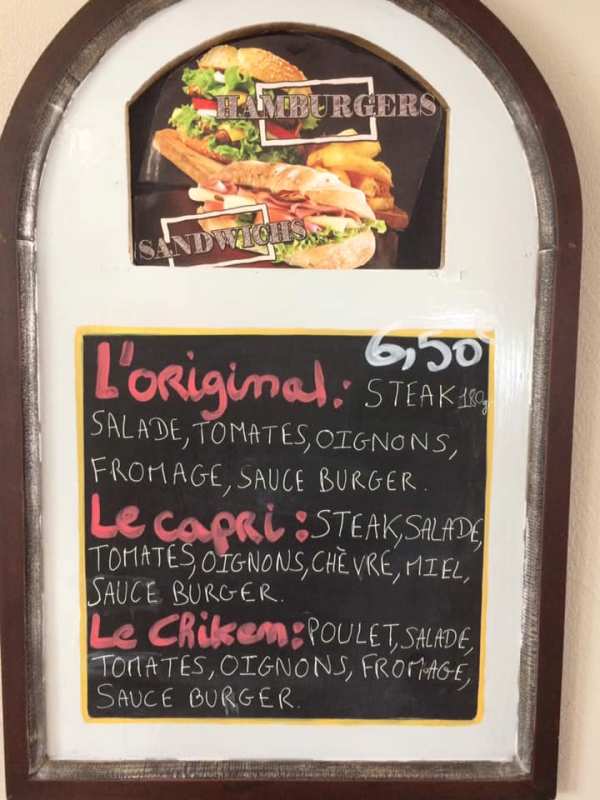 HAMBURGERS
SANDWICHS
6,50€
L'original: STEAK 180g
SALADE, TOMATES, OIGNONS,
FROMAGE, SAUCE BURGER.
Le capri: STEAK, SALADE,
TOMATES, OIGNONS, CHÈVRE, MIEL,
SAUCE BURGER.
Le Chiken: POULET, SALADE,
TOMATES, OIGNONS, FROMAGE,
SAUCE BURGER.